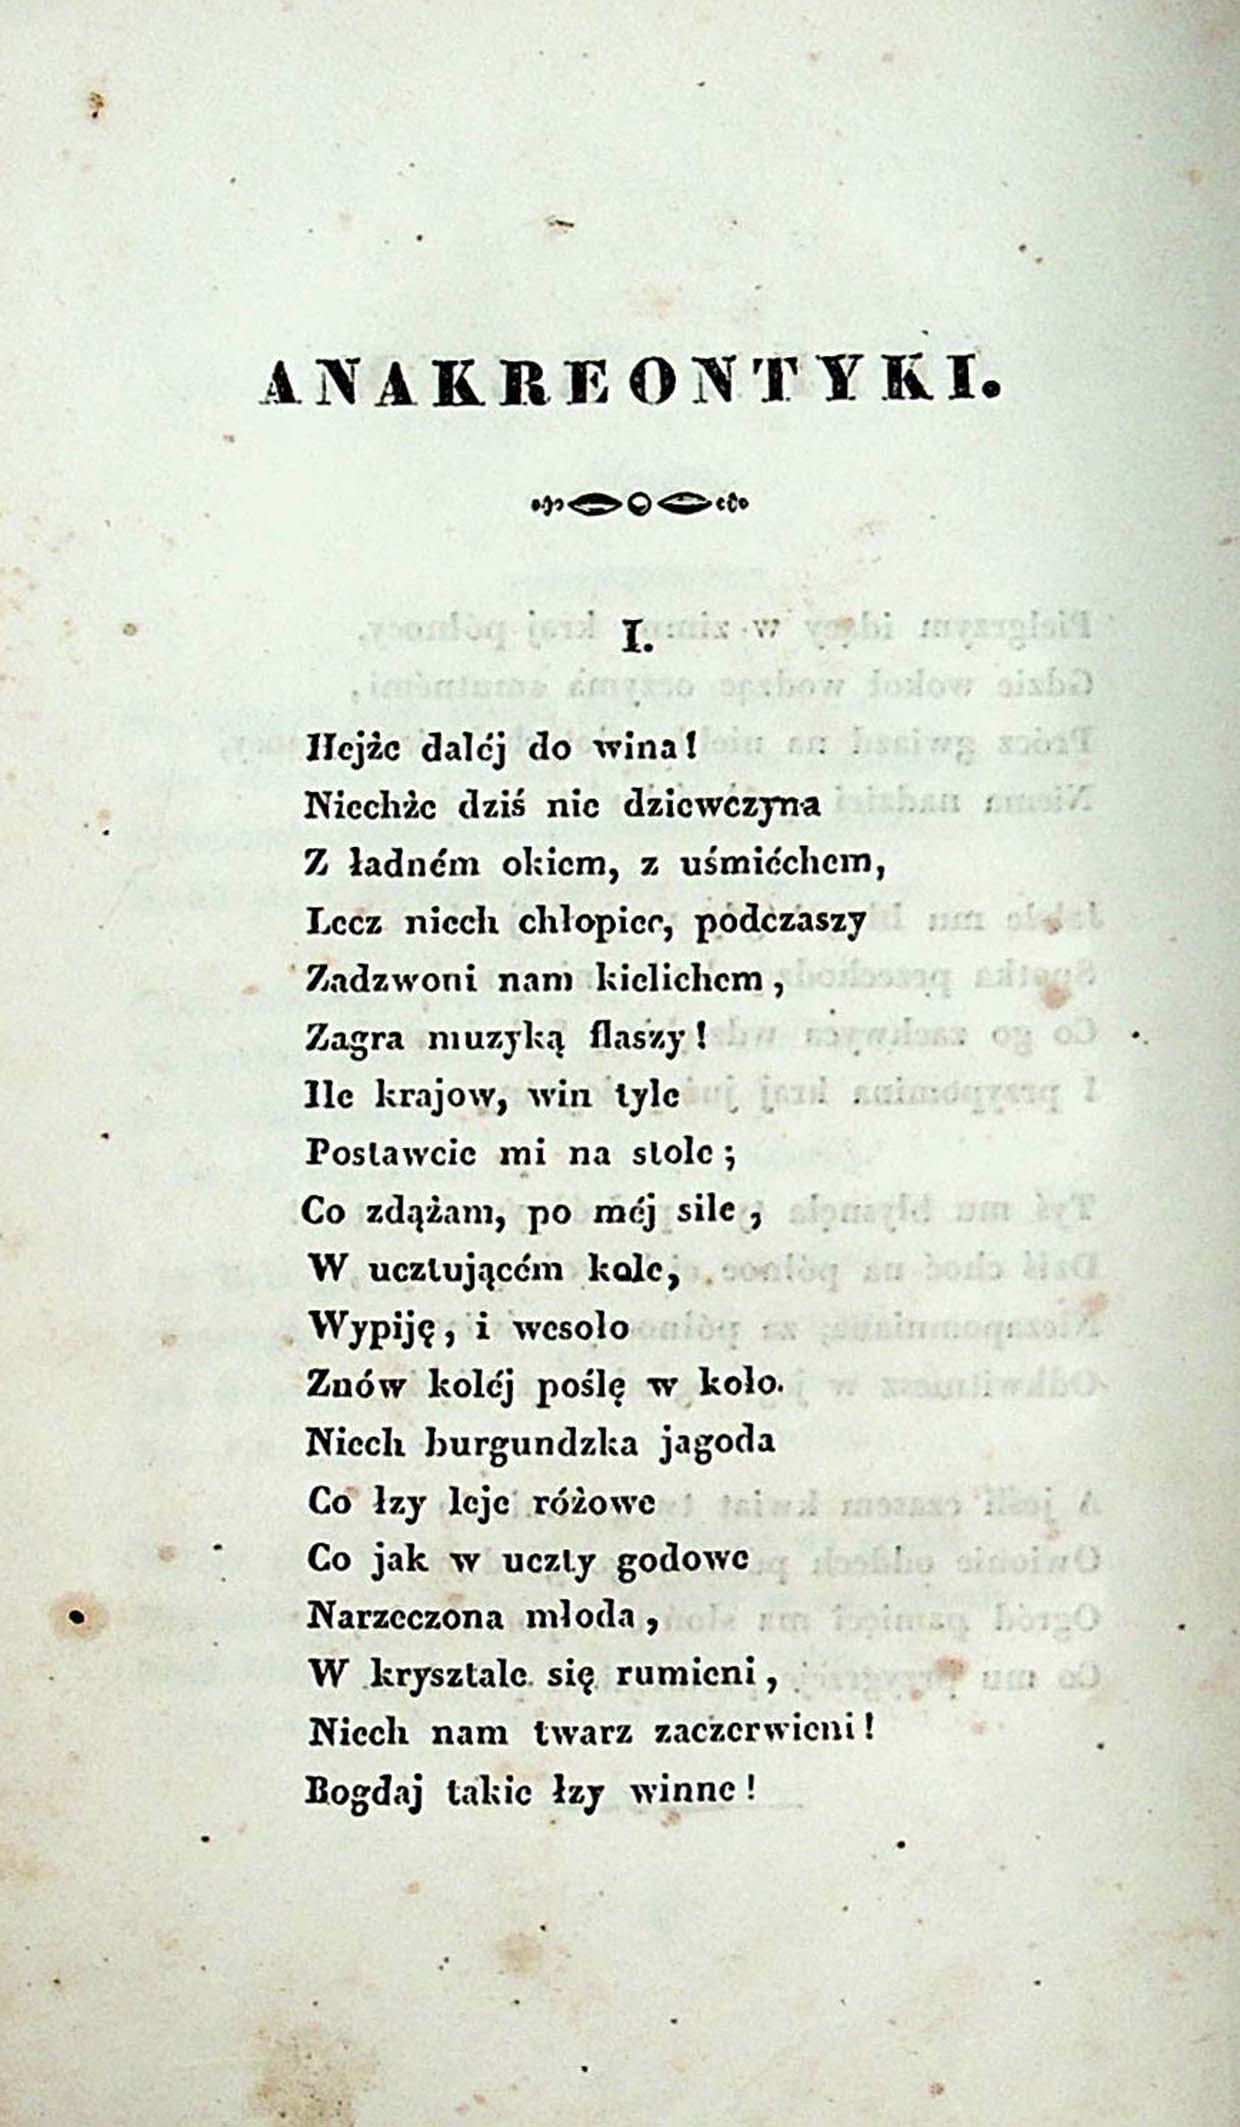 ANAKREONTYKI.
I.
Hejże daléj do wina!
Niechże dziś nie dziewczyna
Z ładném okiem, z uśmiéchem,
Lecz niech chłopiec, podczaszy
Zadzwoni nam kielichem,
Zagra muzyką flaszy!
Ile krajow, win tyle
Postawcie mi na stole;
Co zdążam, po méj sile,
W ucztującém kole,
Wypiję, i wesoło
Znów koléj poślę w koło.
Niech burgundzka jagoda
Co łzy leje różowe
Co jak w uczty godowe
Narzeczona młoda,
W krysztale się rumieni,
Niech nam twarz zaczerwieni!
Bogdaj takie łzy winne!